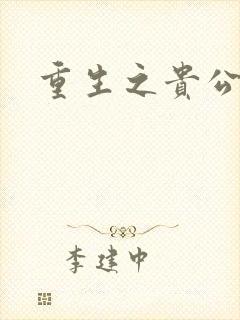 重生之貴公
李建中